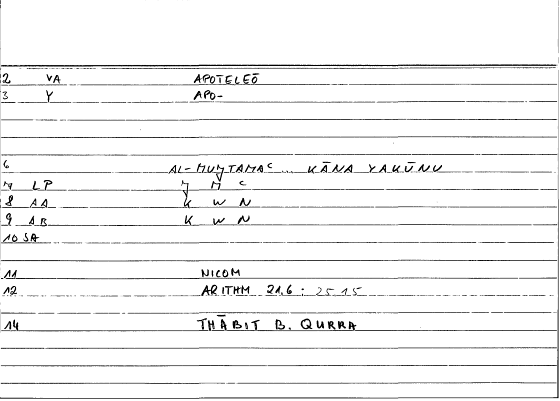 2 VA APOTELEŌ
3 Y APO-
6 AL-MUǦTAMAʿ ... KĀNA YAKŪNU
7 LP Ǧ M ʿ
8 AA K W N
9 AB K W N
10 SA
11 NICOM
12 ARITHM 21.6 : 25.15
14 THĀBIT B. QURRA